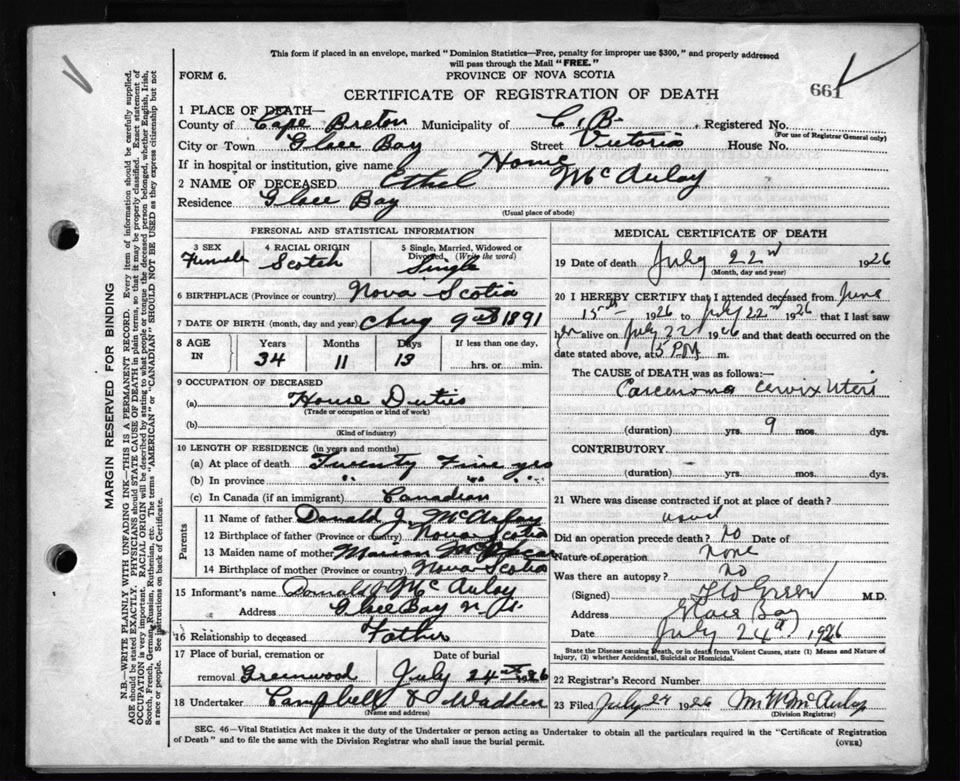 This form if placed in an envelope, marked "Dominion Statistics—Free, penalty for improper use $300," and properly addressed
will pass through the Mail "FREE."
FORM 6.
PROVINCE OF NOVA SCOTIA
661
CERTIFICATE OF REGISTRATION OF DEATH
1 PLACE OF DEATH—
County of Cape Breton Municipality of C. B. Registered No.
(For use of Registrar General only)
City or Town Glace Bay Street Victoria House No.
If in hospital or institution, give name Home
2 NAME OF DECEASED Ethel McAulay
Residence Glace Bay
(Usual place of abode)
PERSONAL AND STATISTICAL INFORMATION
3 SEX Female
4 RACIAL ORIGIN Scotch
5 Single, Married, Widowed or Divorced (Write the word) Single
6 BIRTHPLACE (Province or country) Nova Scotia
7 DATE OF BIRTH (month, day and year) Aug 9th 1891
8 AGE IN Years 34 Months 11 Days 13 If less than one day, hrs. or min.
9 OCCUPATION OF DECEASED
(a) House Duties
(Trade or occupation or kind of work)
(b)
(Kind of industry)
10 LENGTH OF RESIDENCE (in years and months)
(a) At place of death Twenty Five yrs
(b) In province " " "
(c) In Canada (if an immigrant) Canadian
Parents
11 Name of father Donald J. McAulay
12 Birthplace of father (Province or country) Nova Scotia
13 Maiden name of mother Marion
14 Birthplace of mother (Province or country) Nova Scotia
15 Informant's name Donald J McAulay
Address Glace Bay N.S.
16 Relationship to deceased Father
17 Place of burial, cremation or removal Greenwood
Date of burial July 24th 1926
18 Undertaker Campbell & Wadden
(Name and address)
MEDICAL CERTIFICATE OF DEATH
19 Date of death July 22nd 1926
(Month, day and year)
20 I HEREBY CERTIFY that I attended deceased from June
15th 1926 to July 22nd 1926 that I last saw
her alive on July 22 1926 and that death occurred on the
date stated above, at 5 P.M. m.
The CAUSE of DEATH was as follows:—
Carcenoma Cervix Uteri
(duration) yrs. 9 mos. dys.
CONTRIBUTORY
(duration) yrs. mos. dys.
21 Where was disease contracted if not at place of death?
Did an operation precede death? No Date of
Nature of operation None
Was there an autopsy? No
(Signed) Green M.D.
Address Glace Bay
Date July 24th 1926
State the Disease causing Death, or in death from Violent Causes, state (1) Means and Nature of
Injury, (2) whether Accidental, Suicidal or Homicidal.
22 Registrar's Record Number
23 Filed July 24 1926 McAulay
(Division Registrar)
SEC. 46—Vital Statistics Act makes it the duty of the Undertaker or person acting as Undertaker to obtain all the particulars required in the "Certificate of Registration
of Death" and to file the same with the Division Registrar who shall issue the burial permit.
(OVER)
MARGIN RESERVED FOR BINDING
N.B.—WRITE PLAINLY WITH UNFADING INK—THIS IS A PERMANENT RECORD. Every item of information should be carefully supplied.
AGE should be stated EXACTLY. PHYSICIANS should STATE CAUSE OF DEATH in plain terms, so that it may be properly classified. Exact statement of
OCCUPATION is very important. RACIAL ORIGIN will be described by stating to what people or tongue the deceased person belonged, whether English, Irish,
Scotch, French, German, Russian, Ruthenian, etc. The terms "AMERICAN" or "CANADIAN" SHOULD NOT BE USED as they express citizenship but not
a race or people. See instructions on back of Certificate.